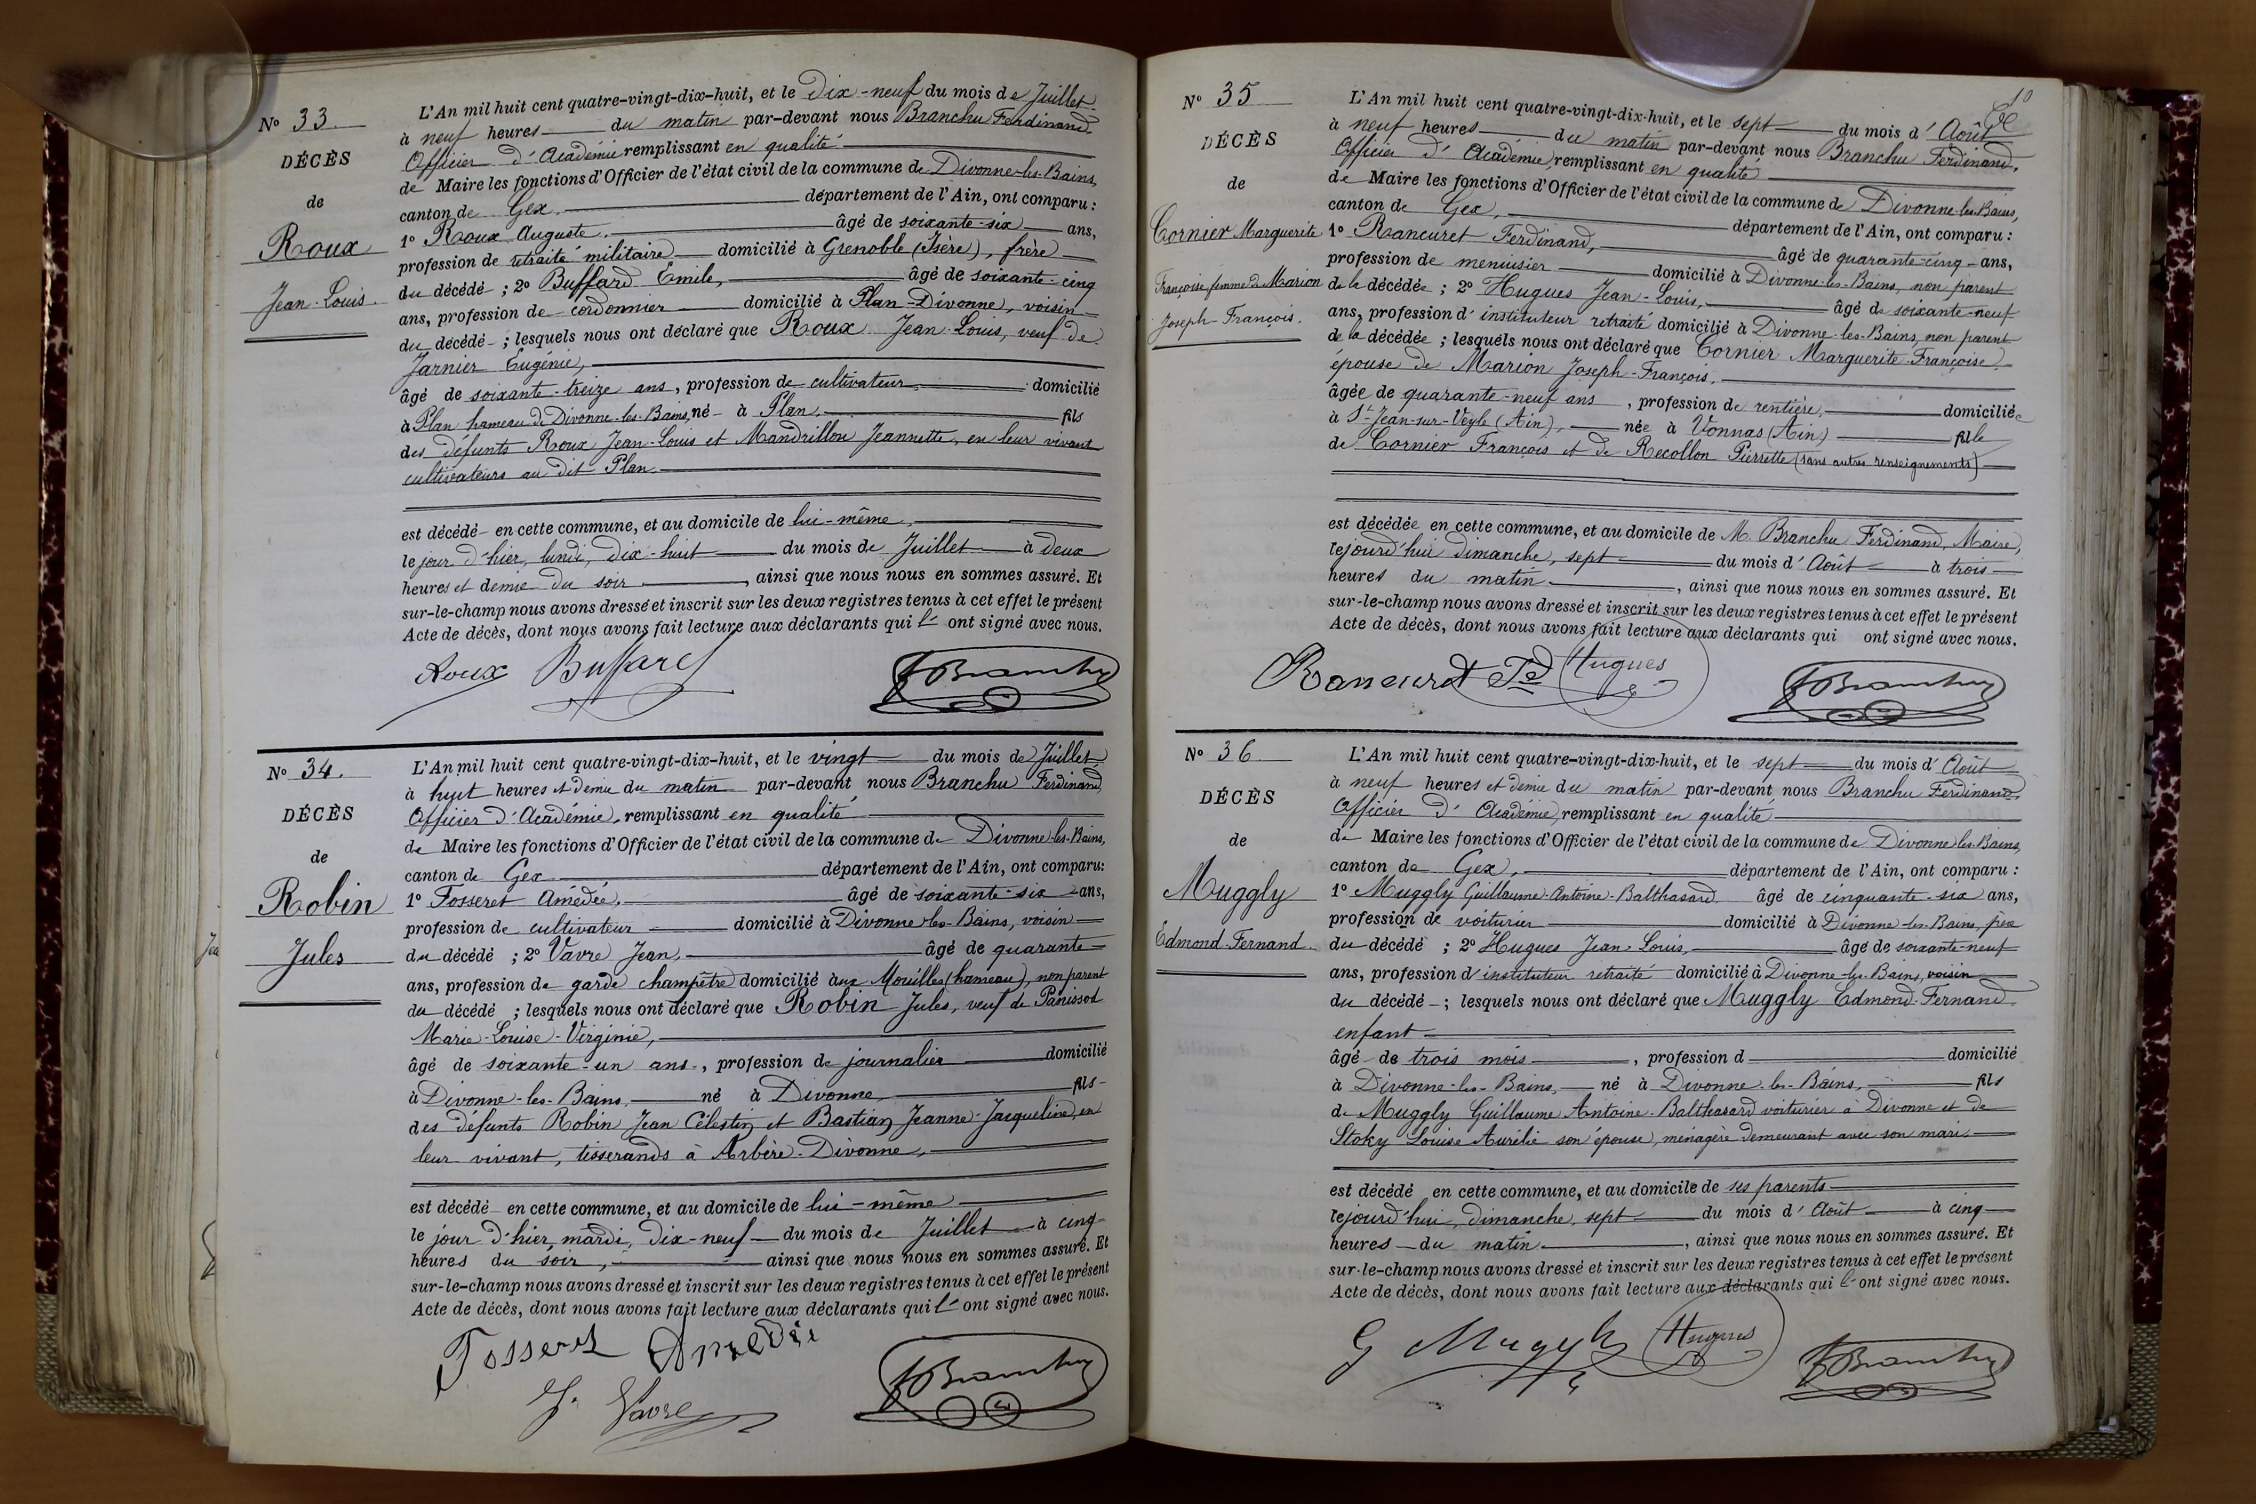 N° 33
DÉCÈS
de
Roux
Jean-Louis
L'An mil huit cent quatre-vingt-dix-huit, et le Dix-neuf du mois de Juillet
à neuf heures du matin par-devant nous Branchu Ferdinand
Officier d'Académie remplissant en qualité
de Maire les fonctions d'Officier de l'état civil de la commune de Divonne-les-Bains,
canton de Gex, département de l'Ain, ont comparu :
1° Roux Auguste, âgé de soixante-six ans,
profession de retraité militaire domicilié à Grenoble (Isère), frère
du décédé ; 2° Buffard Emile, âgé de soixante-cinq
ans, profession de cordonnier domicilié à Plan-Divonne, voisin
du décédé ; lesquels nous ont déclaré que Roux Jean-Louis, veuf de
Jarnier Eugénie,
âgé de soixante-treize ans, profession de cultivateur domicilié
à Plan hameau de Divonne-les-Bains, né à Plan, fils
des défunts Roux Jean-Louis et Mandrillon Jeannette, en leur vivant
cultivateurs au dit Plan.
est décédé en cette commune, et au domicile de lui-même,
le jour d'hier, lundi, dix-huit du mois de Juillet à deux
heures et demie du soir, ainsi que nous nous en sommes assuré. Et
sur-le-champ nous avons dressé et inscrit sur les deux registres tenus à cet effet le présent
Acte de décès, dont nous avons fait lecture aux déclarants qui l' ont signé avec nous.
Roux Buffard FBranchu
N° 34.
DÉCÈS
de
Robin
Jules
L'An mil huit cent quatre-vingt-dix-huit, et le vingt du mois de Juillet
à huit heures et demie du matin par-devant nous Branchu Ferdinand
Officier d'Académie, remplissant en qualité
de Maire les fonctions d'Officier de l'état civil de la commune de Divonne-les-Bains,
canton de Gex département de l'Ain, ont comparu:
1° Fosseret Amédée, âgé de soixante-six ans,
profession de cultivateur domicilié à Divonne-les-Bains, voisin
du décédé ; 2° Vavre Jean, âgé de quarante
ans, profession de garde champêtre domicilié aux Mouilles (hameau), non parent
du décédé ; lesquels nous ont déclaré que Robin Jules, veuf de Panissod
Marie-Louise-Virginie,
âgé de soixante-un ans, profession de journalier domicilié
à Divonne-les-Bains, né à Divonne, fils
des défunts Robin Jean Célestin et Bastian Jeanne-Jacqueline, en
leur vivant, tisserands à Arbère-Divonne,
est décédé en cette commune, et au domicile de lui-même
le jour d'hier, mardi, dix-neuf du mois de Juillet à cinq
heures du soir, ainsi que nous nous en sommes assuré. Et
sur-le-champ nous avons dressé et inscrit sur les deux registres tenus à cet effet le présent
Acte de décès, dont nous avons fait lecture aux déclarants qui l' ont signé avec nous.
Fosseret Amédée
J. Vavre FBranchu
10
N° 35
DÉCÈS
de
Cornier Marguerite
Françoise femme de Marion
Joseph-François.
L'An mil huit cent quatre-vingt-dix-huit, et le sept du mois d'Août
à neuf heures du matin par-devant nous Branchu Ferdinand,
Officier d'Académie, remplissant en qualité
de Maire les fonctions d'Officier de l'état civil de la commune de Divonne-les-Bains,
canton de Gex, département de l'Ain, ont comparu :
1° Rancuret Ferdinand, âgé de quarante-cinq ans,
profession de menuisier domicilié à Divonne-les-Bains, non parent
de la décédée ; 2° Hugues Jean-Louis, âgé de soixante-neuf
ans, profession d'instituteur retraité domicilié à Divonne-les-Bains, non parent
de la décédée ; lesquels nous ont déclaré que Cornier Marguerite-Françoise,
épouse de Marion Joseph-François,
âgée de quarante-neuf ans, profession de rentière, domiciliée
à St-Jean-sur-Veyle (Ain), née à Vonnas (Ain) fille
de Cornier François et de Recollon Pierrette (sans autres renseignements)
est décédée en cette commune, et au domicile de M. Branchu Ferdinand, Maire,
lejourd'hui dimanche, sept du mois d'Août à trois
heures du matin, ainsi que nous nous en sommes assuré. Et
sur-le-champ nous avons dressé et inscrit sur les deux registres tenus à cet effet le présent
Acte de décès, dont nous avons fait lecture aux déclarants qui ont signé avec nous.
Rancuret Fd Hugues FBranchu
N° 36
DÉCÈS
de
Muggly
Edmond-Fernand.
L'An mil huit cent quatre-vingt-dix-huit, et le sept du mois d'Août
à neuf heures et demie du matin par-devant nous Branchu Ferdinand,
Officier d'Académie, remplissant en qualité
de Maire les fonctions d'Officier de l'état civil de la commune de Divonne-les-Bains,
canton de Gex, département de l'Ain, ont comparu :
1° Muggly Guillaume-Antoine-Balthasard âgé de cinquante-six ans,
profession de voiturier domicilié à Divonne-les-Bains, père
du décédé ; 2° Hugues Jean-Louis, âgé de soixante-neuf
ans, profession d'instituteur retraité domicilié à Divonne-les-Bains, voisin
du décédé ; lesquels nous ont déclaré que Muggly Edmond-Fernand
enfant
âgé de trois mois, profession d domicilié
à Divonne-les-Bains, né à Divonne-les-Bains, fils
de Muggly Guillaume Antoine-Balthasard voiturier à Divonne et de
Stoky Louise Aurélie son épouse, ménagère demeurant avec son mari.
est décédé en cette commune, et au domicile de ses parents
lejourd'hui, dimanche, sept du mois d'Août à cinq
heures du matin, ainsi que nous nous en sommes assuré. Et
sur-le-champ nous avons dressé et inscrit sur les deux registres tenus à cet effet le présent
Acte de décès, dont nous avons fait lecture aux déclarants qui l' ont signé avec nous.
G Muggly Hugues FBranchu